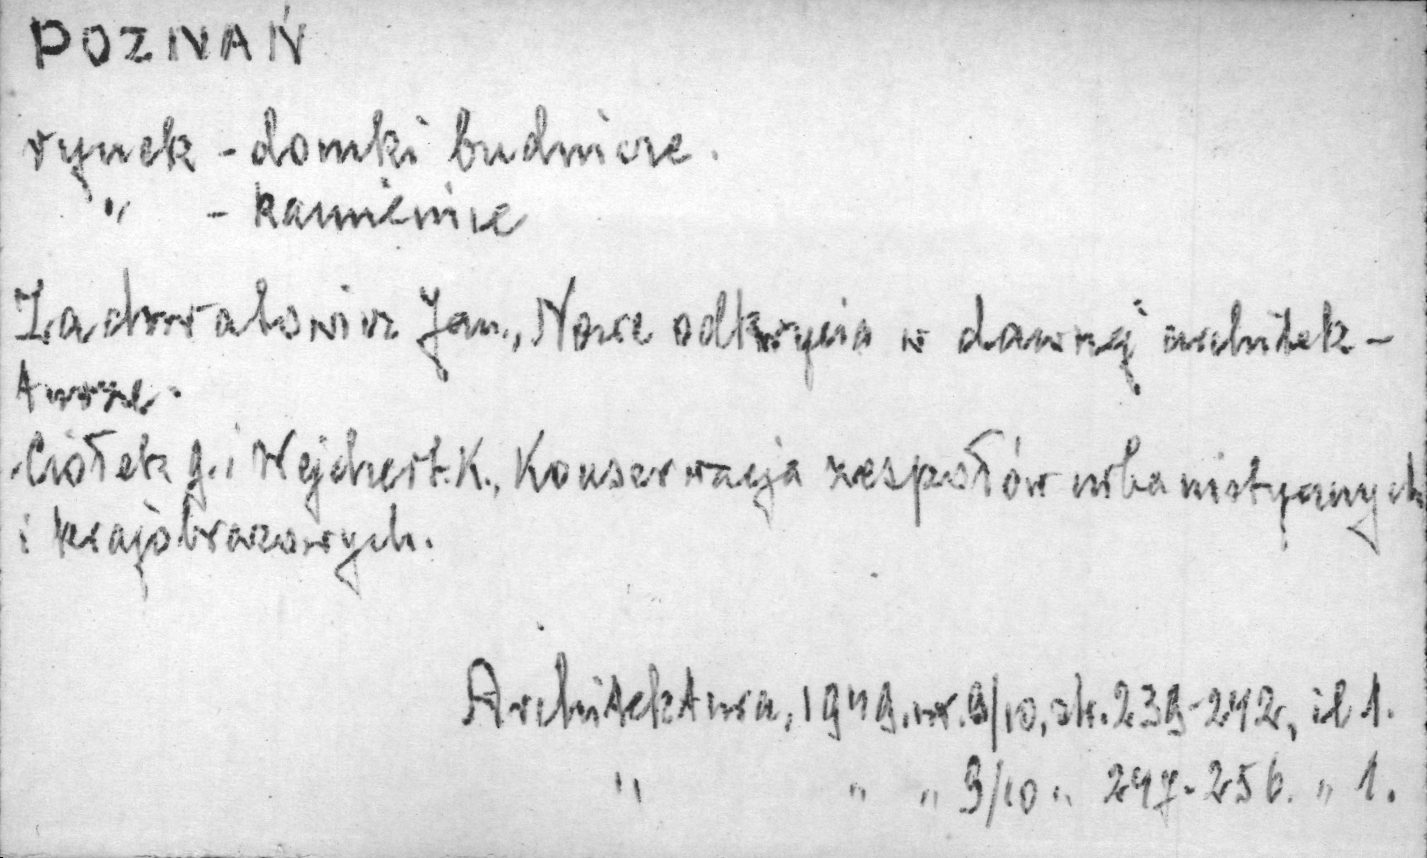 POZNAŃ
rynek - domki budnicze.
" - kamienice
Zachwatowicz Jan., Nowe odkrycia w dawnej architek-
turze.
Ciołek G. i Wejchert.K., Konserwacja zespołów urbanistycznych
i krajobrazowych.
Architektura, 1949, nr. 9/10, str. 239-242, il 1.
" " " 9/10 " 247-256. " 1.